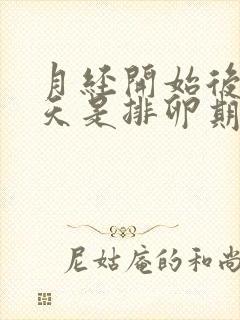 月經開始後
天是排卵期
尼姑庵的和尚